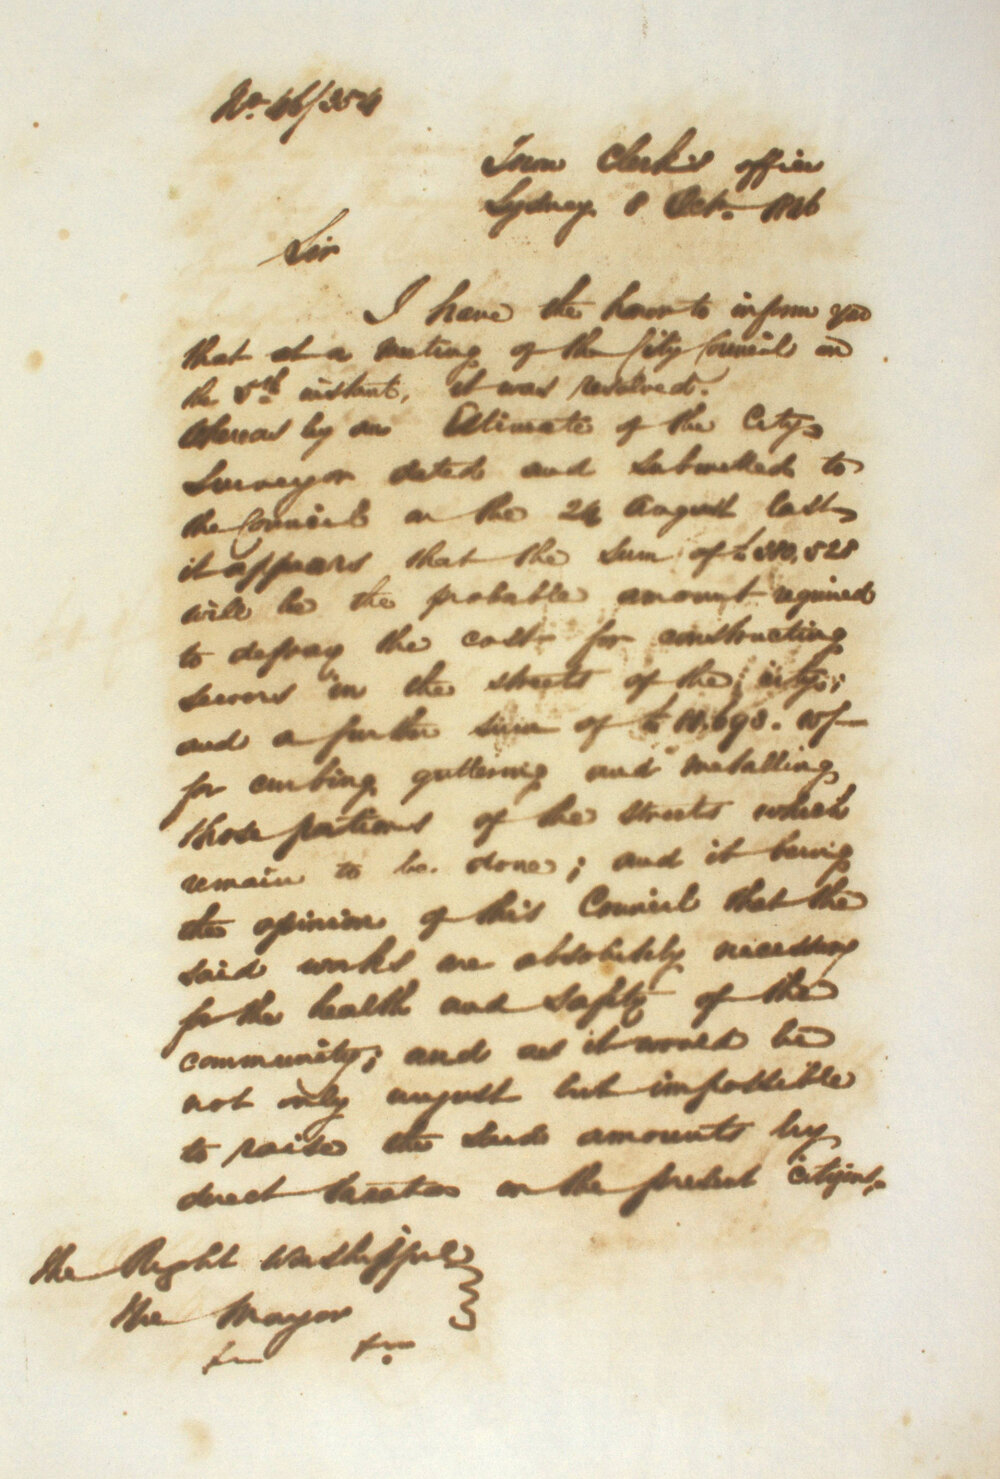 No. 46/354
Town Clerk's office
Sydney 8 Octr. 1846
Sir
I have the honor to inform you
that at a meeting of the City Council on
the 5th instant, it was resolved.
Whereas by an Estimate of the City
Surveyor dated and submitted to
the Council on the 24 August last
it appears that the sum of £
will be the probable amount required
to defray the cost for constructing
sewers in the streets of the city;
and a further sum of £
for curbing, guttering and metalling
those portions of the streets which
remain to be done; and it being
the opinion of this Council that the
said works are absolutely necessary
for the health and safety of the
community; and as it would be
not only august but impossible
to raise the said amounts by
direct taxation on the present citizens,
The Right Worshipful
The Mayor